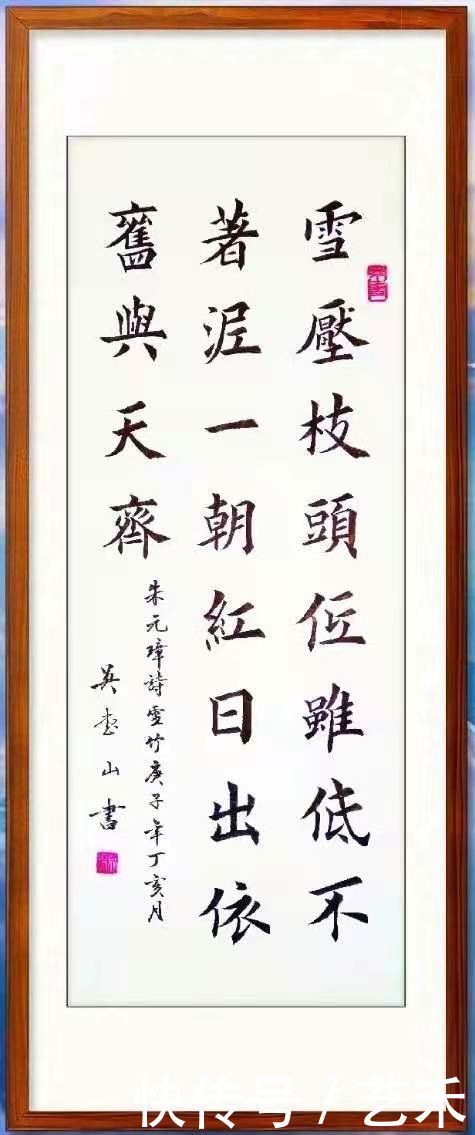 雪壓枝頭仾雖低不
著泥一朝紅日出依
舊與天齊
朱元璋詩雪竹庚子年丁亥月
山書
快传号 / 艺禾